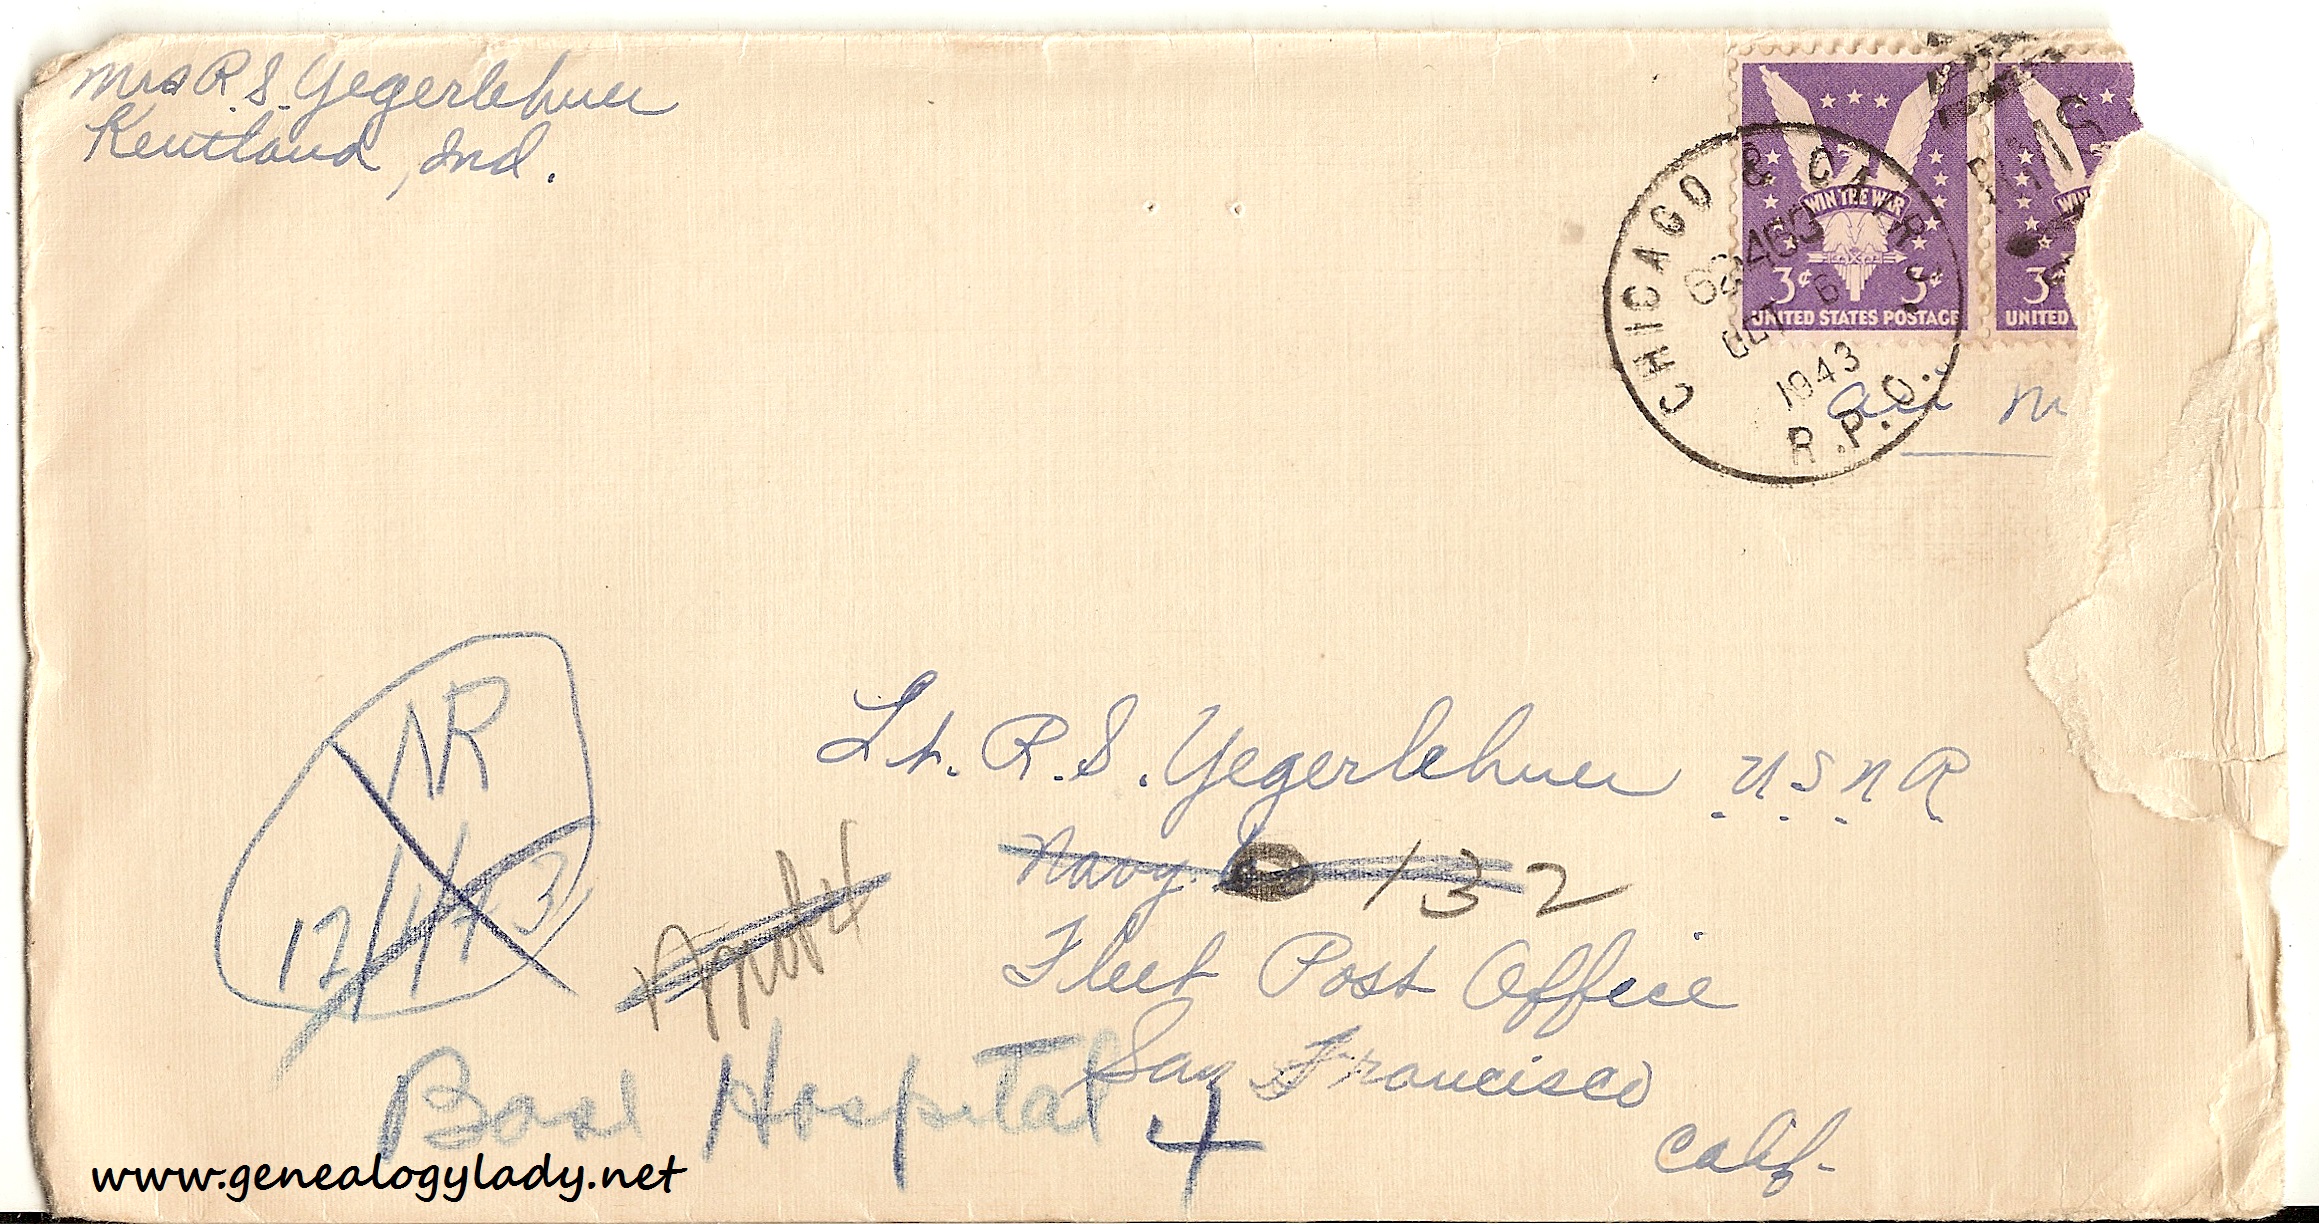 Mrs R. S. Yegerlehner
Kentland, Ind.
WIN THE WAR
3¢ 3¢
UNITED STATES POSTAGE
WIN
3¢
UNITED
CHICAGO & CAR
OCT 6
1943
R.P.O.
Air M
Lt. R. S. Yegerlehner U.S.N.R.
Navy 132
Fleet Post Office
San Francisco
Calif.
NR
12/1/43
Base Hospital 4
www.genealogylady.net